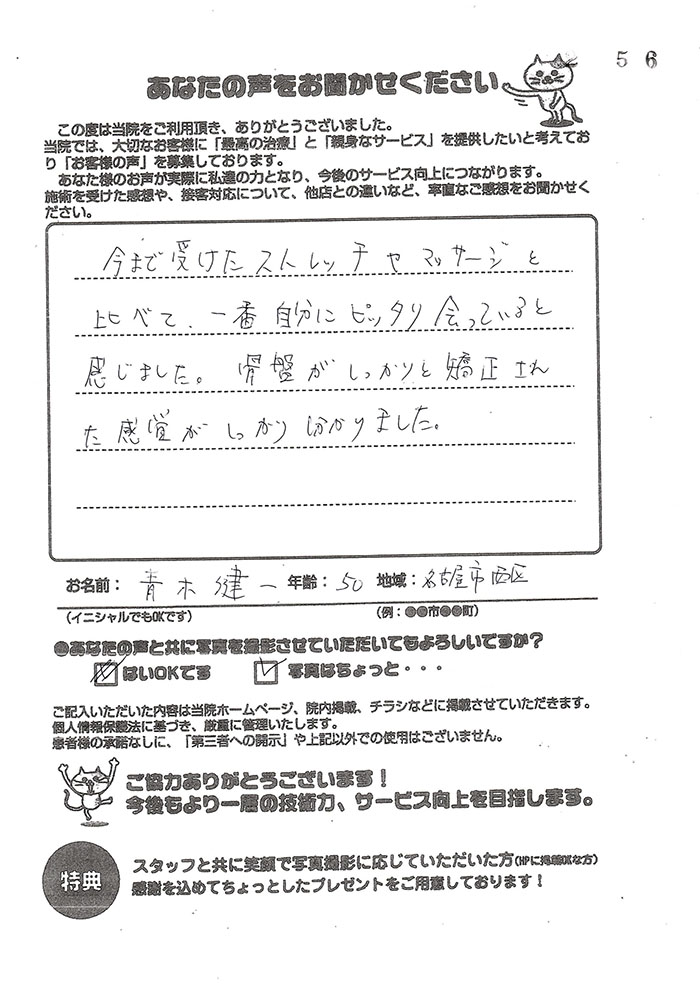 5 6
あなたの声をお聞かせください
この度は当院をご利用頂き、ありがとうございました。
当院では、大切なお客様に「最高の治療」と「親身なサービス」を提供したいと考えてお
り「お客様の声」を募集しております。
あなた様のお声が実際に私達の力となり、今後のサービス向上につながります。
施術を受けた感想や、接客対応について、他店との違いなど、率直なご感想をお聞かせく
ださい。
今まで受けたストレッチやマッサージと
比べて、一番自分にピッタリ会っていると
感じました。骨盤がしっかりと矯正され
た感覚がしっかり分かりました。
お名前: 青木健一 年齢: 50 地域: 名古屋市西区
(イニシャルでもOKです) (例:●●市●●町)
●あなたの声と共に写真を撮影させていただいてもよろしいですか?
はいOKです 写真はちょっと・・・
ご記入いただいた内容は当院ホームページ、院内掲載、チラシなどに掲載させていただきます。
個人情報保護法に基づき、厳重に管理いたします。
患者様の承諾なしに、「第三者への開示」や上記以外での使用はございません。
ご協力ありがとうございます!
今後もより一層の技術力、サービス向上を目指します。
特典
スタッフと共に笑顔で写真撮影に応じていただいた方(HPに掲載OKな方)
感謝を込めてちょっとしたプレゼントをご用意しております!